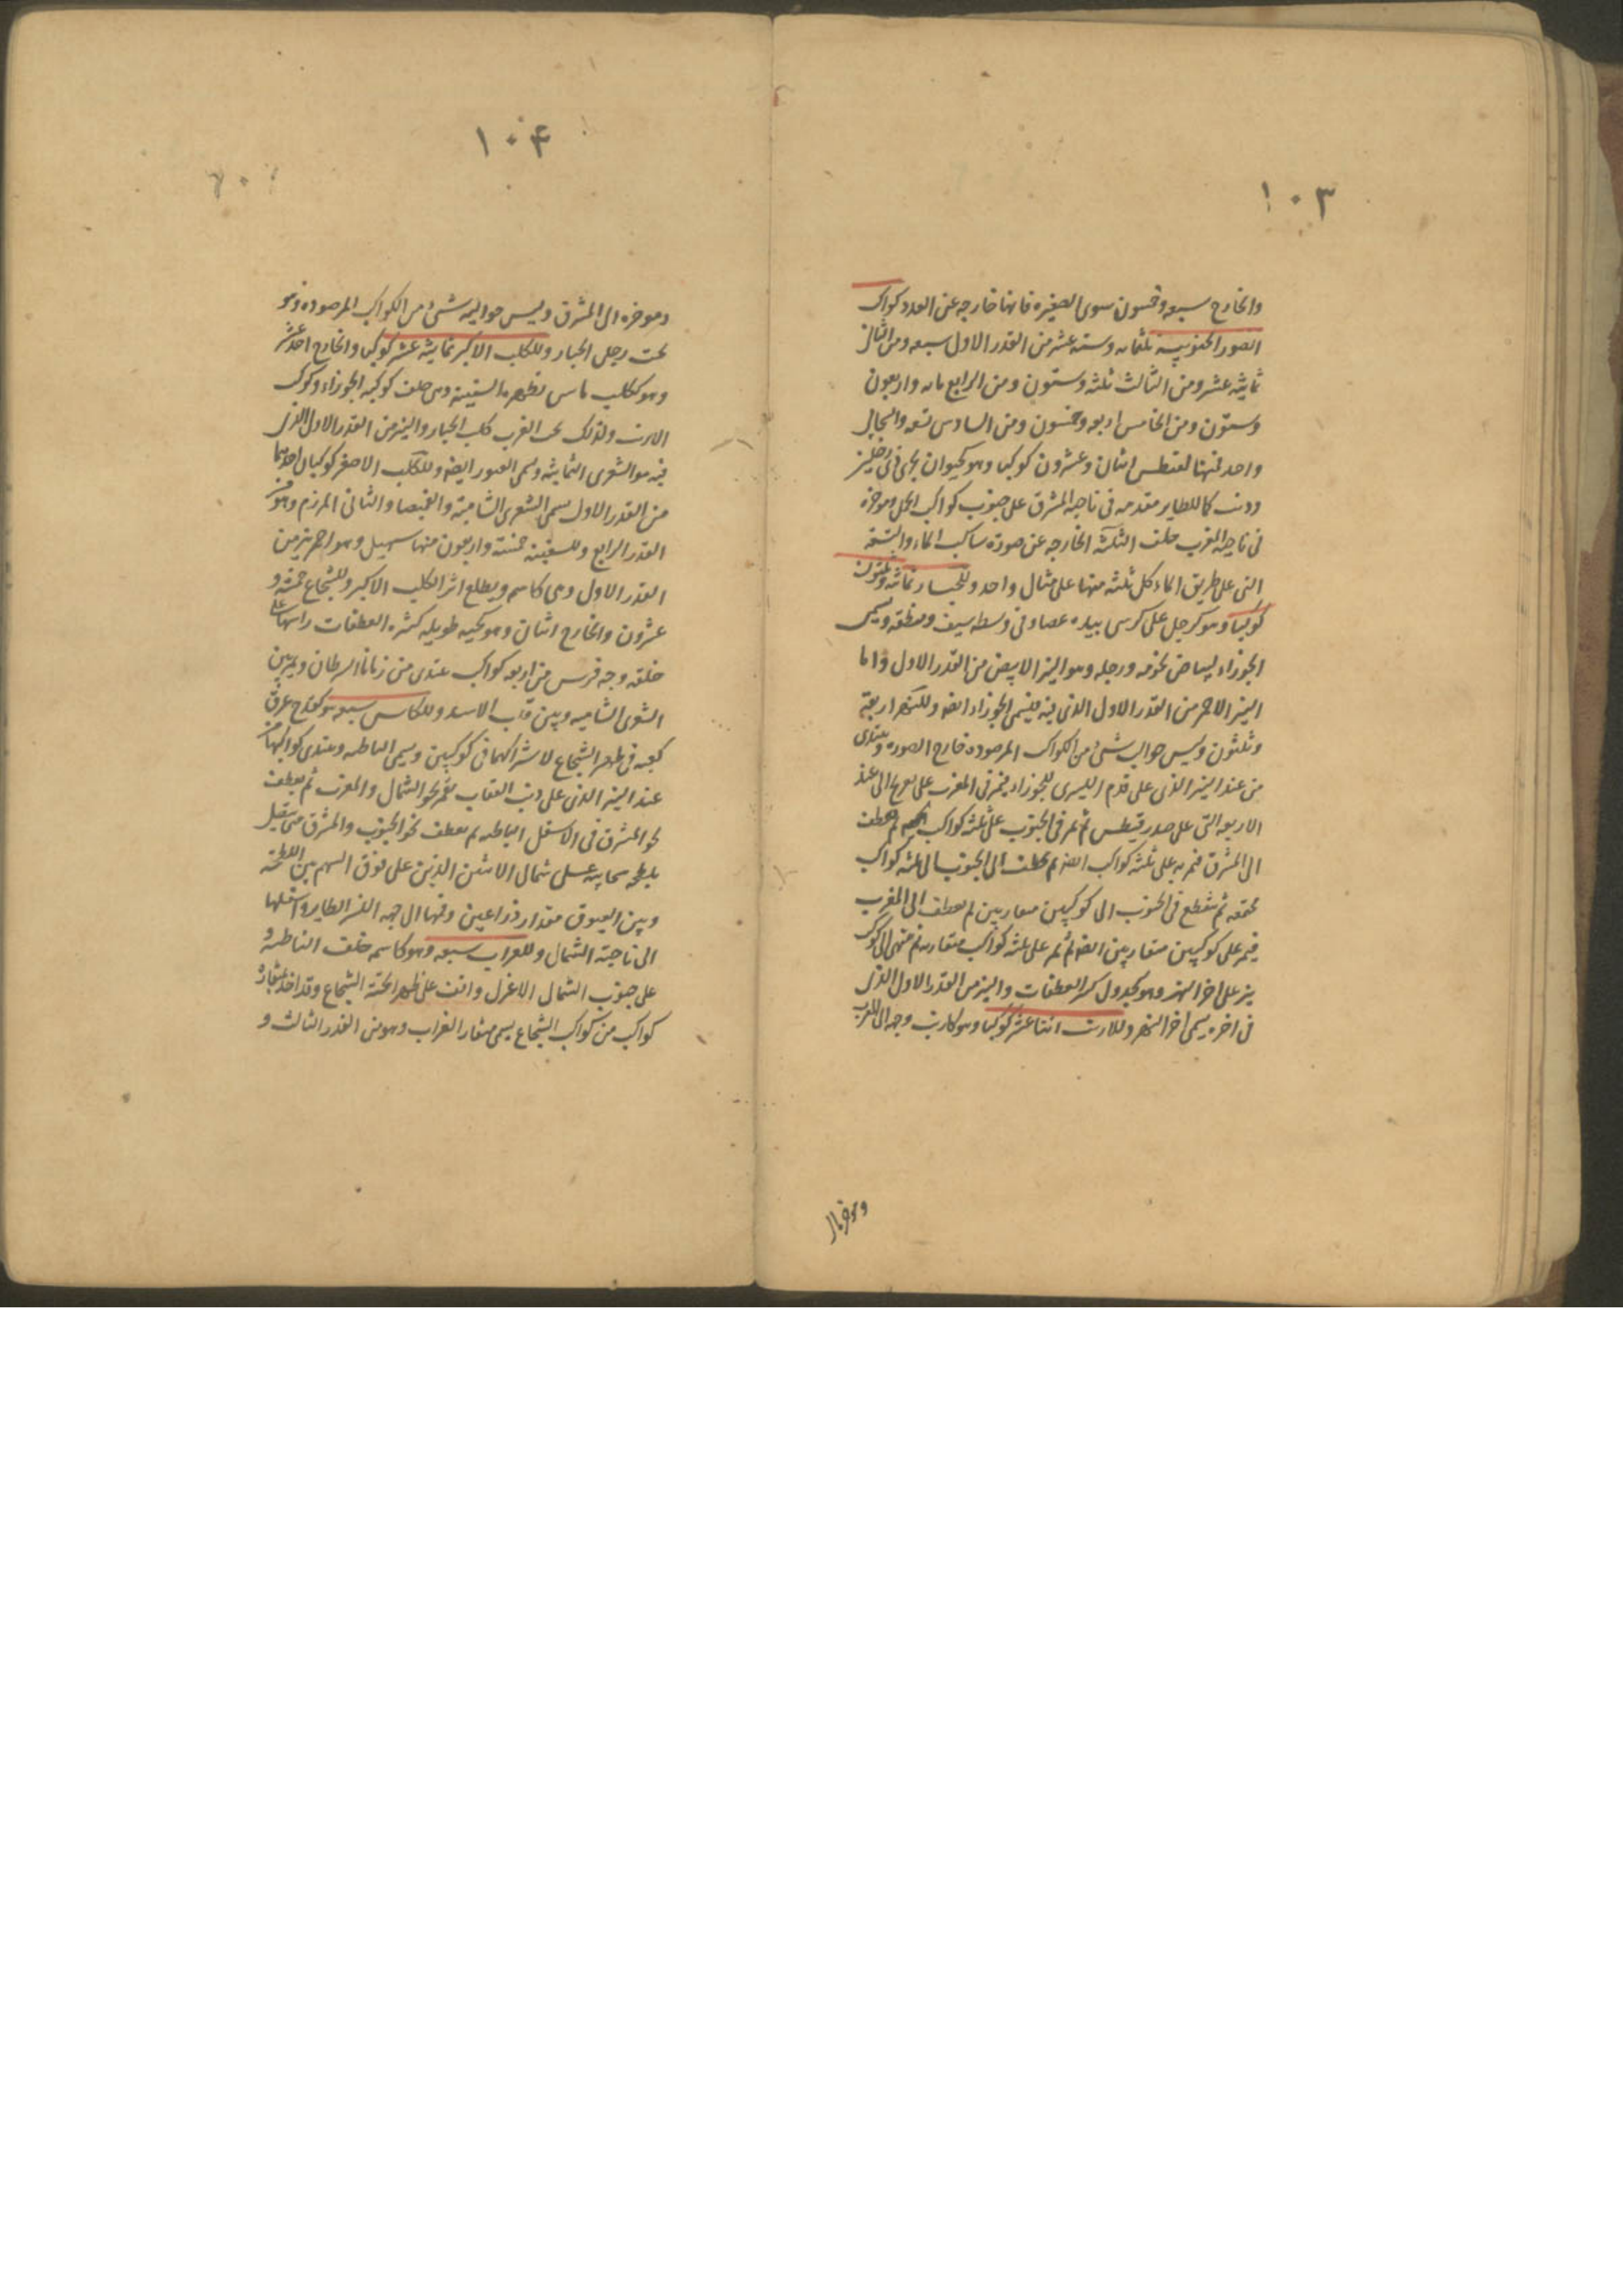 ١٠٣
والخارج سبعه وخمسون سوى الصغيره فانها خارجه عن العدد كواكب
الصور الجنوبيه ثلثمائه وسته عشر من القدر الاول سبعه ومن الثانى
ثمانيه عشر ومن الثالث ثلثه وستون ومن الرابع مايه واربعون
وستون ومن الخامس اربعه وخمسون ومن السادس تسعه والسحابى
واحد فمنها لقيطس اثنان وعشرون كوكبا وهو كحيوان بحرى ذى رجلين
وذنب كالطاير مقدمه فى ناحيه المشرق على جنوب كواكب الحمل وموخره
فى ناحيه المغرب خلف الثلثه الخارجه عن صوره ساكب الماء والتسعه
التى على طريق الماء كل ثلثه منها على مثال واحد وللجبار ثمانيه وثلثون
كوكبا وهو كرجل على كرسى بيده عصا وفى وسطه سيف ومنطقه ويسمى
الجوزاء لبياض نجومه ورجله وهو النير الابيض من القدر الاول واما
النير الاحمر من القدر الاول الذى فيه فيسمى الجوزاء ايضا وللنهر اربعه
وثلثون وليس حواليه شىء من الكواكب المرصوده خارج الصوره ويبتدى
من عند النير الذى على قدم اليسرى للجوزاء فيمر فى المغرب على تعريج الى عند
الاربعه التى على صدر قيطس ثم يمر فى الجنوب على ثلثه كواكب ثم يعطف
الى المشرق فيمر به على ثلثه كواكب ايضا ثم يعطف الى الجنوب الى ثلثه كواكب
مجتمعه ثم ينقطع فى الجنوب الى كوكبين متقاربين ثم يعطف الى المغرب
فيمر على كوكبين متقاربين ايضا ثم يمر على ثلثه كواكب متقاربه ثم ينتهى الى كوكب
نير على اخر النهر وهو كجدول كثير العطفات والنير من القدر الاول الذى
فى اخره يسمى اخر النهر وللارنب اثنا عشر كوكبا وهو كارنب وجهه الى المغرب
وموخره الى
١٠۴
وموخره الى المشرق وليس حواليه شىء من الكواكب المرصوده وهو
تحت رجلى الجبار وللكلب الاكبر ثمانيه عشر كوكبا والخارج احد عشر
وهو ككلب خلف كوكبه الجوزاء وكوكب
الارنب ولذلك العرب كلب الجبار والنير من القدر الاول الذى
فيه هو الشعرى اليمانيه ويسمى العبور ايضا وللكلب الاصغر كوكبان احدهما
من القدر الاول يسمى الشعرى الشاميه والغميصا والثانى المرزم وهو من
القدر الرابع وللسفينه خمسه واربعون منها سهيل وهو احمر نير من
القدر الاول وهى كاسم ويطلع اثر الكلب الاكبر وللشجاع خمسه و
عشرون والخارج اثنان وهو كحيه طويله كثيره العطفات راسها على
خلقه وجه فرس من اربعه كواكب يبتدى من زبانا السرطان ويمر بين
الشعرى الشاميه وبين قلب الاسد وللكاس سبعه وهو كقدح غرق
كعبه فى ظهر الشجاع لاشتراكهما فى كوكبين ويسمى الباطيه ويبتدى كواكبها من
عند النير الذى على ذنب العقاب يمر نحو الشمال والمغرب ثم يعطف
نحو المشرق فى الاسفل الباطيه ثم يعطف نحو الجنوب والمشرق متى يتصل
بلطخه سحابيه على شمال الاثنين الذين على فوق السهم بين اللطخه
وبين العيوق مقدار ذراعين وفمها الى جهه النسر الطاير واسفلها
الى ناحيه الشمال وللغراب سبعه وهو كاسم خلف الباطيه و
على جنوب الشمال الاعزل واقف على ظهر الحيه الشجاع وقد اخذ بمنقاره
كواكب من كواكب الشجاع يسمى منقار الغراب وهو من القدر الثالث و